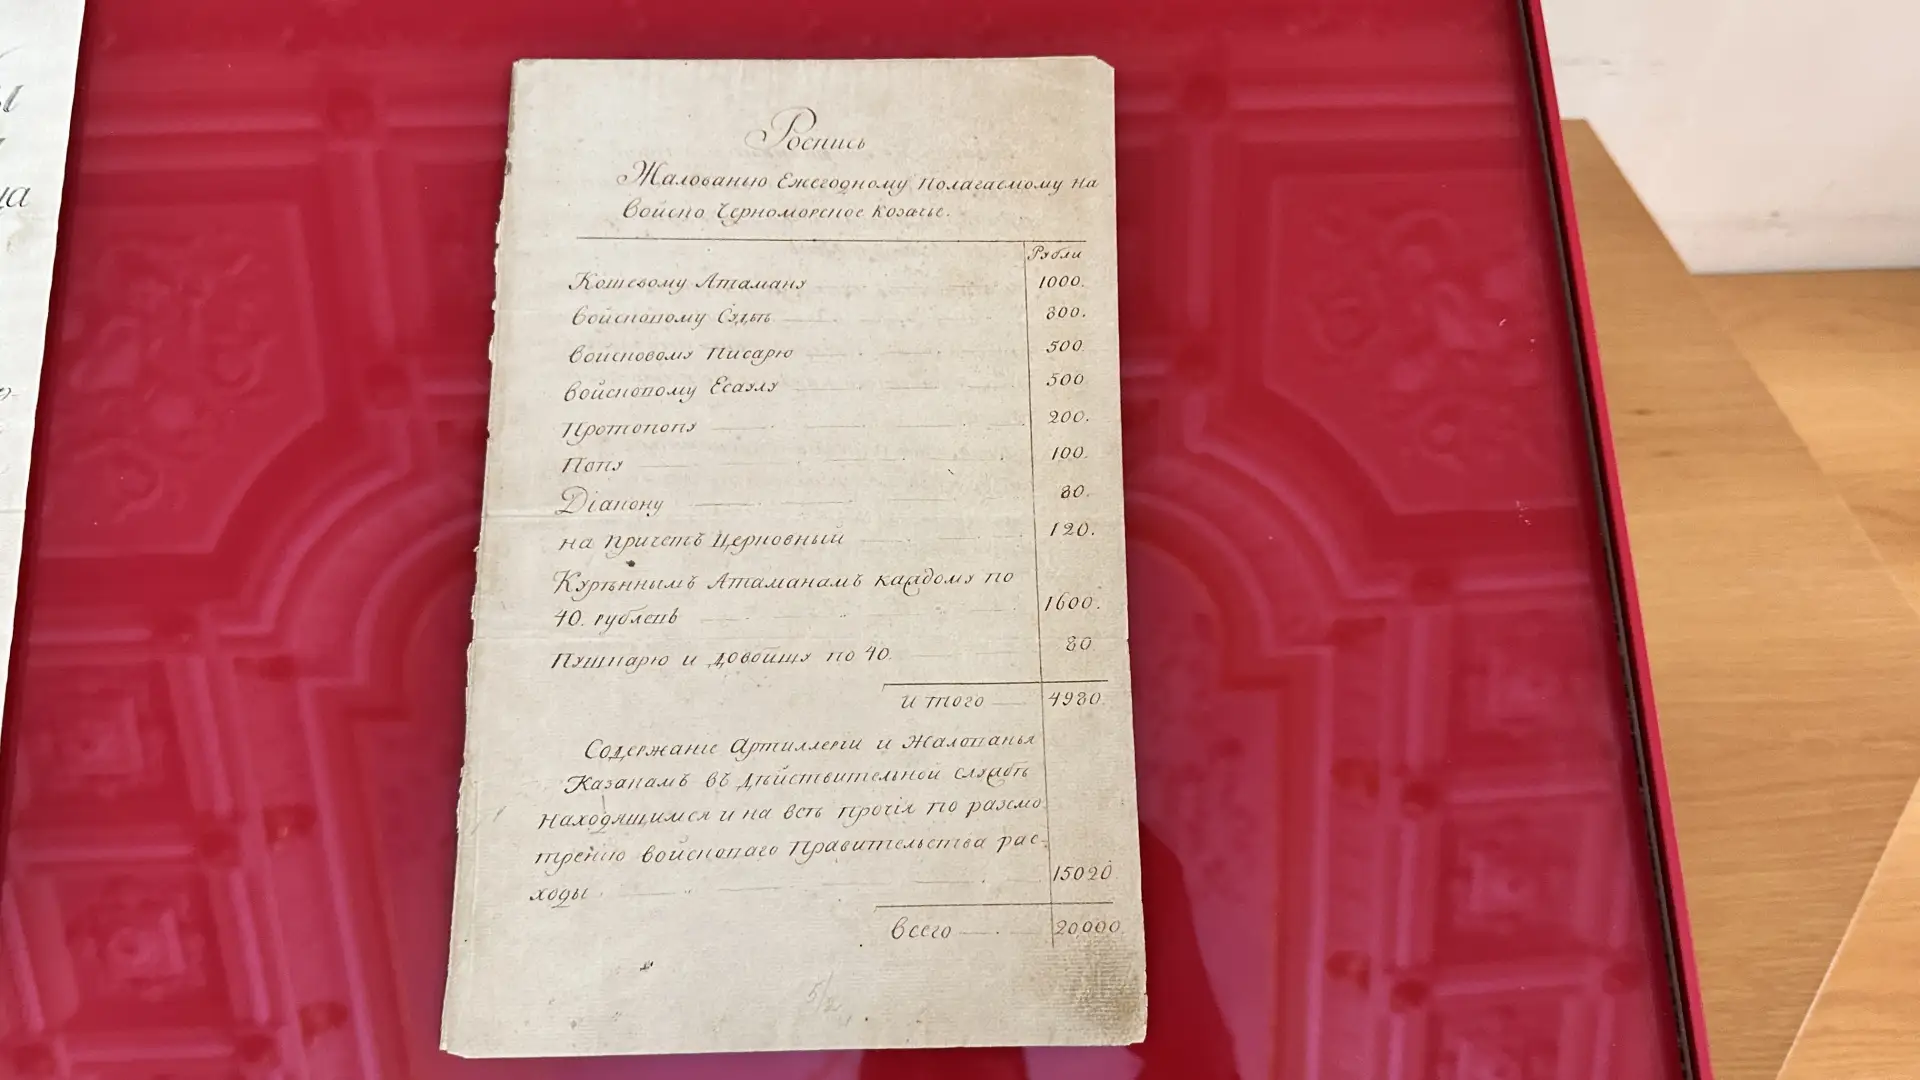 ы
ца
Роспись
Жалованью Ежегодному полагаемому на
Войско Черноморское козачье.
Рубли
Кошевому Атаману 1000.
Войсковому Судьѣ 800.
Войсковому Писарю 500
Войсковому Есаулу 500
Протопопу 200.
Попу 100.
Діакону 80.
на причетъ Церковный 120.
Курѣннымъ Атаманамъ каждому по
40. рублей 1600.
Пушкарю и довбишу по 40. 80
итого 4980.
Содержаніе Артиллеріи и Жалованья
Казакамъ въ дѣйствительной службѣ
находящимся и на всѣ прочія по разсмо
трению войсковаго Правительства рас-
ходы 15020.
всего 20,000.
5/2